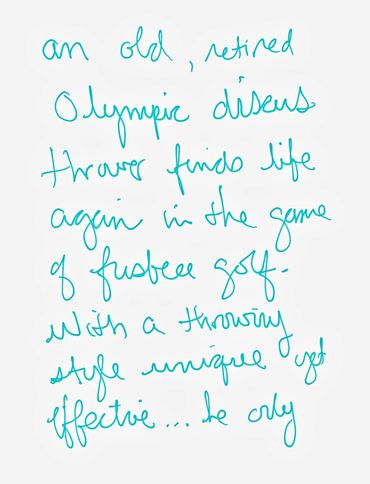 an old, retired
Olympic discus
thrower finds life
again in the game
of frisbee golf.
With a throwing
style unique yet
effective... he only